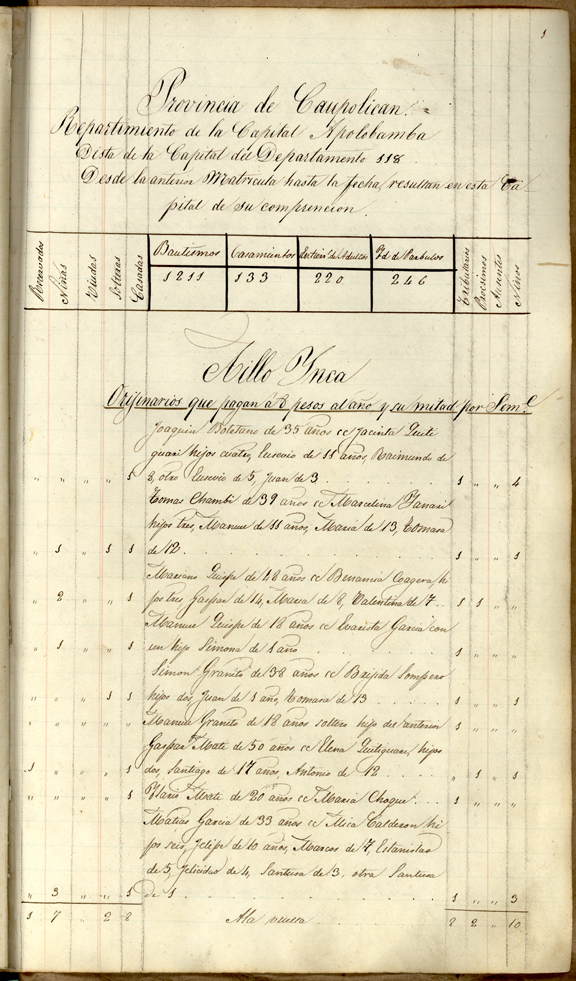 1
Provincia de Caupolican.
Repartimiento de la Capital Apolobamba
Dista de la Capital del Departamento 118
Desde la anterior Matricula hasta la fecha, resultan en esta Ca
pital de su comprencion.
Recervados Niñas Viudas Solteras Casadas Bautismos Casamientos Entierr.s de Adultos Yd. de Parbulos Tributarios Procsimos Ausentes Niños
1211 133 220 246
Aillo Ynca
Orijinarios que pagan á 8 pesos al año y su mitad por Sem.e
Joaquin Boletano de 35 años cc Jacinta Quite
quari hijos cuatro, Eusevio de 11 años, Raimundo de
" " " " 1 8, otro Eusevio de 5, Juan de 3 1 " " 4
Tomas Chambi de 39 años cc Marcelina
hijos tres, Manuel de 11 años, Maria de 13, Tomasa
" 1 " 1 1 de 12. 1 " " 1
Mariano Quispe de 48 años cc hi
" 2 " " 1 jos tres, Gaspar de 14, Maria de 8, Valentina de 7. 1 1 " "
Manuel Quispe de 18 años cc Evarista Garcia con
" 1 " " 1 un hijo Simona de 1 año 1 " " "
Simon Granito de 38 años cc Brijida Sompero
" " " 1 1 hijos dos, Juan de 1 año, Tomasa de 13 1 " " 1
" " " " " Manuel Granito de 18 años soltero hijo del anterior 1 " " "
Gaspar Mate de 50 años cc Elena Quitiquari, hijos
1 " " " 1 dos, Santiago de 17 años, Antonio de 12 " 1 " 1
" " " " 1 Ylario Mate de 20 años cc Maria Choque 1 " " "
Matias Garcia de 33 años cc Mica Calderon hi
jos seis, Felipe de 10 años, Marcos de 7, Estanislao
de 5, Felicidad de 4, Santusa de 3, otra Santusa
" 3 " " 1 de 1 1 " " 3
1 7 " 2 8 A la vuelta 8 2 " 10